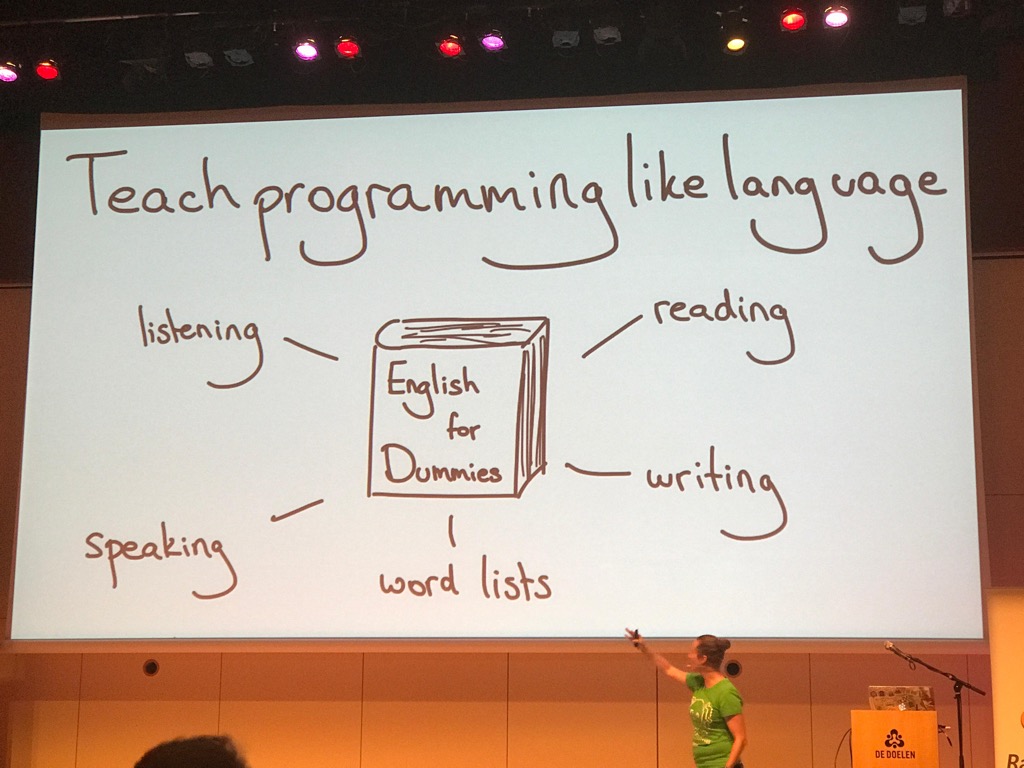 Teach programming like language
listening
reading
English
for
Dummies
writing
speaking
word lists
DE DOELEN